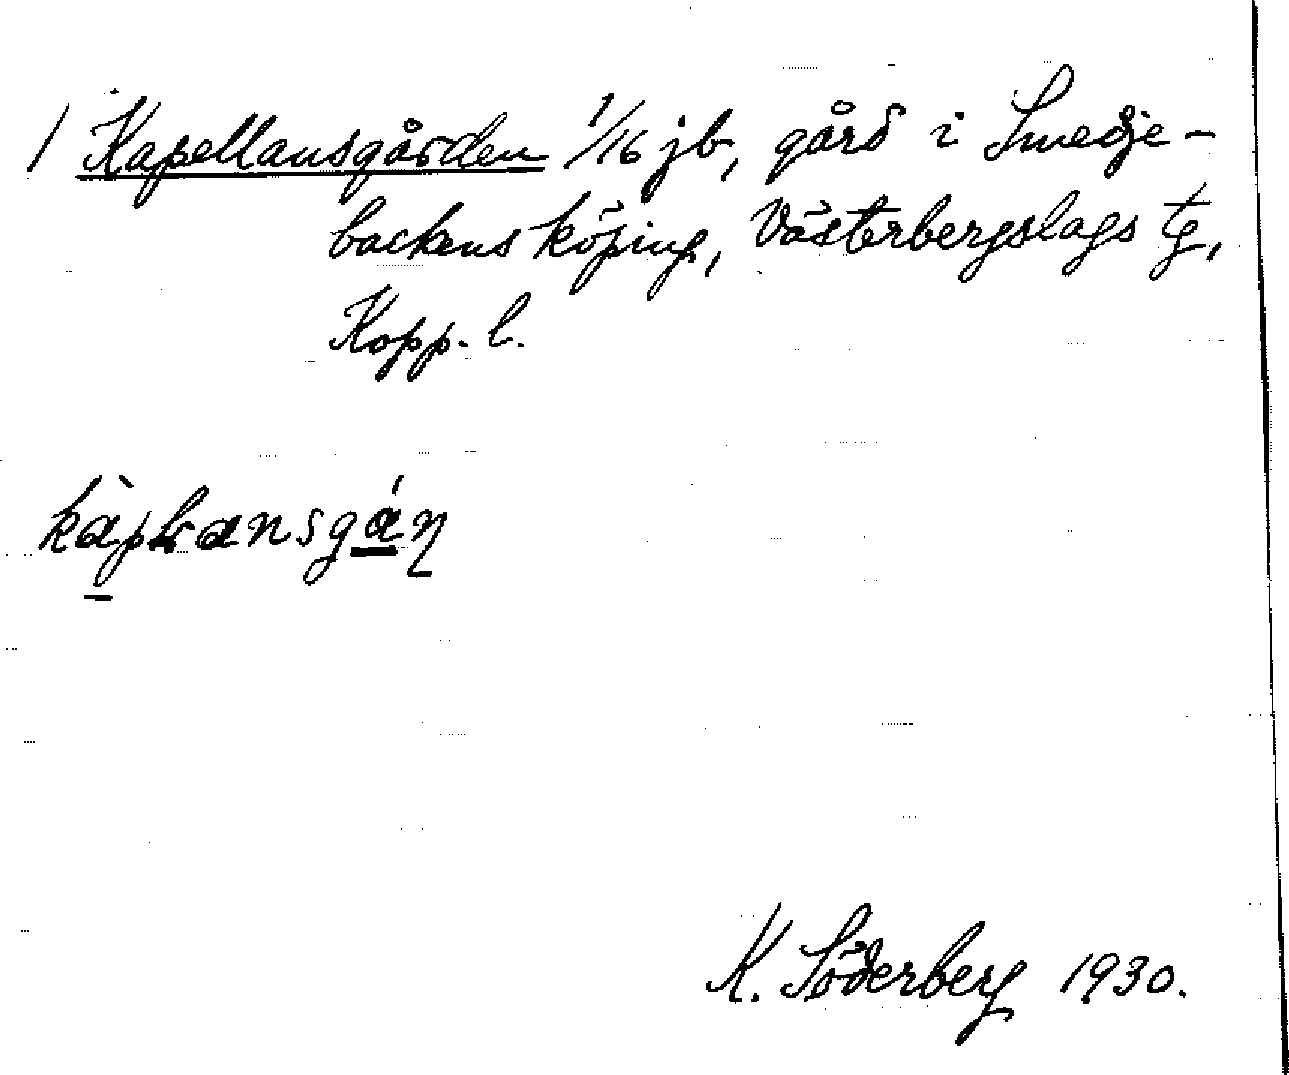 / Kapellansgården 1/16 jb, gård i Smedje-
backens köping, Västerbergslags tg,
Kopp. l.
K. Söderberg 1930.